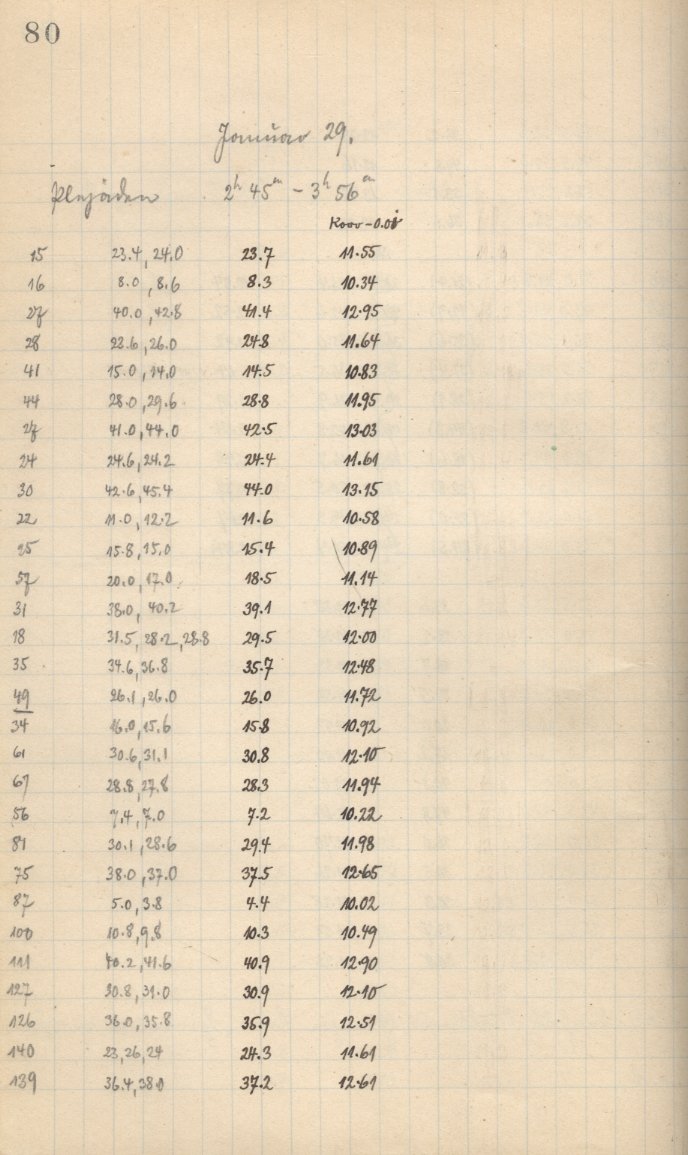 80
Januar 29.
Plejaden 2h 45m – 3h 56m
Korr –0.01
15 23.4, 24.0 23.7 11.55
16 8.0, 8.6 8.3 10.34
27 40.0, 42.8 41.4 12.95
28 23.6, 26.0 24.8 11.64
41 15.0, 14.0 14.5 10.83
44 28.0, 29.6 28.8 11.95
27 41.0, 44.0 42.5 13.03
24 24.6, 24.2 24.4 11.61
30 42.6, 45.4 44.0 13.15
22 11.0, 12.2 11.6 10.58
25 15.8, 15.0 15.4 10.89
57 20.0, 17.0 18.5 11.14
31 38.0, 40.2 39.1 12.77
18 31.5, 28.2, 28.8 29.5 12.00
35 34.6, 36.8 35.7 12.48
49 26.1, 26.0 26.0 11.72
34 16.0, 15.6 15.8 10.92
61 30.6, 31.1 30.8 12.10
67 28.8, 27.8 28.3 11.94
56 7.4, 7.0 7.2 10.22
81 30.1, 28.6 29.4 11.98
75 38.0, 37.0 37.5 12.65
87 5.0, 3.8 4.4 10.02
100 10.8, 9.8 10.3 10.49
111 40.2, 41.6 40.9 12.90
127 30.8, 31.0 30.9 12.10
126 36.0, 35.8 35.9 12.51
140 23, 26, 24 24.3 11.61
139 36.4, 38.0 37.2 12.61